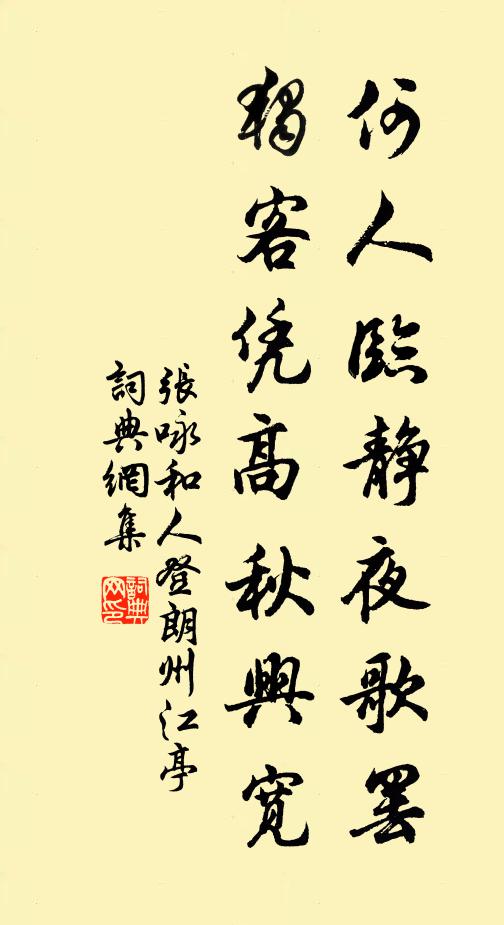 何人臨静夜歌罢
獨客凭高秋興寬
張咏和人登朗州江亭
詞典網集
詞典网印